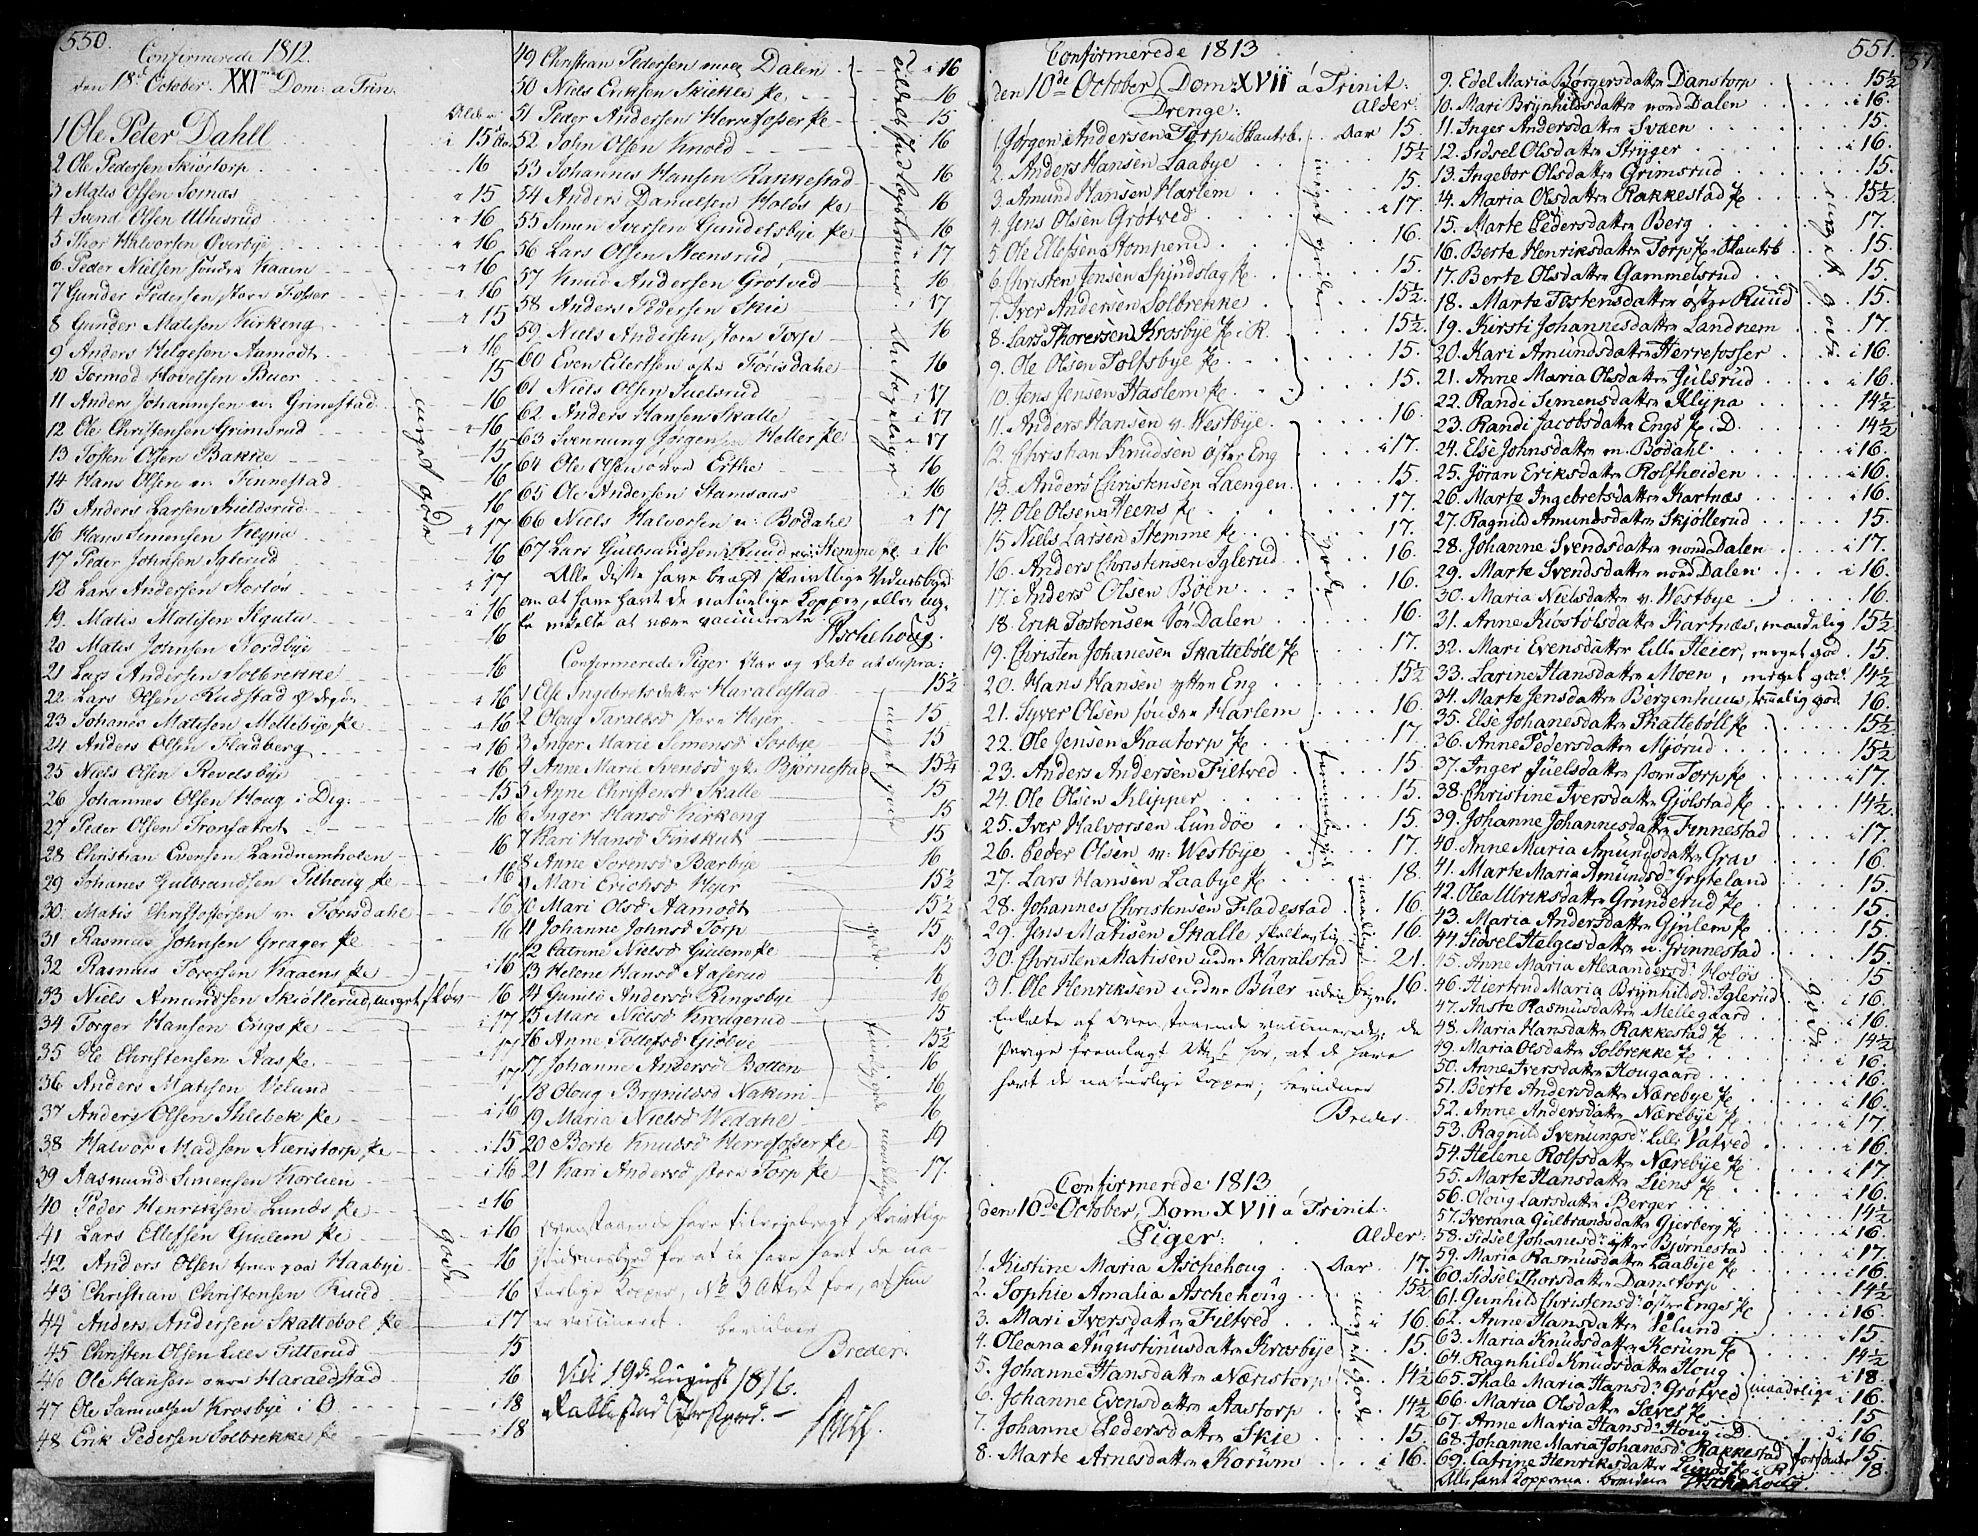 550.
Confirmerede 1812.
den 18de October. XXI Dom: a Trin.
Alder
1 Ole Peter Dahll i 15 Aar
2 Ole Pedersen Skiøstorp 16
3 Matis Olsen Sornæs i 15
4 Svend Olsen Ultusrud i 16
5 Thor Halvorsen Overbye i 16
6 Peder Nielsen søndre Kaaen i 16
7 Gunder Pedersen store Fosser i 16
8 Gunder Matisen Kirkeng i 15
9 Anders Helgesen Aamodt i 16
10 Tormod Hovelsen Buer 15
11 Anders Johannesen n: Grinestad 16
12 Ole Christensen Grimsrud i 16
13 Tosten Olsen Bakke 15
14 Hans Olsen n: Finnestad 16
15 Anders Larsen Kieldsrud 16
16 Hans Simensen Klypa i 17
17 Peder Johnsen Iglerud 16
18 Lars Andersen Horløs i 17
19 Matis Matisen Igulu i 16
20 Matis Johnsen Nordbye 16
21 Lars Andersen Solbrekke 16
22 Lars Olsen Rudstad i 16
23 Johanes Matisen Mellebye /Ie i 16
24 Anders Olsen Fladberg i 16
25 Niels Olsen Revelsbye i 16
26 Johannes Olsen Houg i Deg: 15
27 Peder Olsen Tronsæteret 16
28 Christian Evensen Landnemholen 16
29 Johanes Gulbrandsen Filhoug /Ie i 16
30 Matis Christophersen v. Førisdahl 16
31 Rasmus Johnsen Greager /Ie 16
32 Rasmus Toresen Kaaens /Ie i 16
meget gode
33 Niels Amundsen Skiøllerud, meget skiøn 16
34 Torger Hansen Engs /Ie i 17
35 Ole Christensen Aas /Ie 17
36 Anders Matisen Velund 17
37 Anders Olsen Slilebek /Ie i 16
38 Halvor Madsen Neristorp /Ie i 15
39 Aasmund Simensen Korsien i 16
40 Peder Henriksen Lunds /Ie i 16
41 Lars Ellefsen Giulem /Ie i 16
42 Anders Olsen tiener paa Haabye 16
43 Christian Christensen Ruud 16
44 Anders Andersen Skattebøl /Ie i 17
45 Christen Olsen Lille Titterud 15
46 Ole Hansen øvre Haraldstad 16
47 Ole Samuelsen Krosbye i Ø i 18
48 Erik Pedersen Solbrekke /Ie i 18
gode
49 Christian Pedersen nord Dalen i 16
50 Niels Eriksen Skiekle /Ie 16
51 Peder Andersen Herrefosser /Ie 15
52 John Olsen Knold i 16
53 Johannes Hansen Rakkestad 16
54 Anders Danielsen Holøs /Ie 16
55 Simen Iversen Gundersbye /Ie 16
56 Lars Olsen Steensrud i 17
57 Knud Andersen Grøtved 16
58 Anders Pedersen Skie i 17
59 Niels Andersen store Torp 16
60 Even Eilertsen østre Førisdahl 16
61 Niels Olsen Juelsrud i 17
62 Anders Hansen Skalle i 17
63 Svennung Jørgensen Heller /Ie i 17
64 Ole Olsen øvre Ertke 16
65 Ole Andersen Stamsaas i 16
66 Niels Halvorsen n: Bodahl i 17
67 Lars Gulbrandsen Ruud Stemme /Ie i 16
Alle disse have bragt skrivtlige Vidnesbyrd
om at have havt de naturlige Kopper, eller og
enkelte at være vaccinerede.
Aschehoug.
Confirmerede Piger Aar og Dato ut supra:
1 Else Ingebretsdatter Haraldstad 15½
2 Oloug Taraldsd store Hejer 15
3 Inger Marie Simensd Sosbye 15
4 Anne Marie Svendsd yt: Bjørnestad 15¾
5 Anne Christensd Skalle 15
6 Inger Hansd Kirkeng 15
7 Kari Hansd Finskut 15
8 Anne Sørensd Bærbye 16
meget gode
9 Mari Erichsd Hejer 15½
10 Mari Olsd Aamodt 15½
11 Johanne Johnsd Torp 15
12 Catrine Nielsd Giulem /Ie 15
13 Helene Hansd Aaserud 16
14 Gunild Andersd Ringsbye 16
15 Mari Nielsd Krodgerud 15
gode.
16 Anne Tollefsd Giøbye 15½
17 Johanne Andersd Botten 16
18 Oloug Brynildsd Nakim 16
19 Maria Nielsd Wedahl 16
20 Berte Knudsd Herrefosser /Ie 19
21 Kari Andersd store Torp /Ie 17.
maadelige
Ovenstaaende have tilveiebragt skrivtlige
Vidnesbyrd for at de have havt de na-
turlige Kopper, No 3 Attest for, at hun
er vaccineret. bevidner
Breder.
Vidi 19de August 1816.
Rakkestad Præstegaard.

551.
Confirmerede 1813
den 10de October, Dom XVII á Trinit:
Drenge: Alder:
1. Jørgen Andersen Torp i Skautsb. Aar 15.
2. Anders Hansen Laabye 15½
3. Amund Hansen Harlem 15.
4. Jens Olsen Grøtved i 17.
5. Ole Ellefsen Stomperud 16.
6. Christen Jensen Spindslag /Ie 15.
7. Iver Andersen Solbrekke 15½.
8. Lars Thoresen Krosbye /Ie i R. 15½.
9. Ole Olsen Tolfsbye /Ie 15.
10. Jens Jensen Haslem /Ie 15.
meget gode
11. Anders Hansen v. Westbye 16.
12. Christian Knudsen øster Eng i 17.
13. Anders Christensen Laengen 15.
14. Ole Olsen Heens /Ie 17.
15 Niels Larsen Stemme /Ie 17.
16. Anders Christensen Iglerud 16.
17. Anders Olsen Bøen 16.
18. Erik Tostensen Sør Dalen 16.
19. Christen Johanesen Skattebøll /Ie 17.
20. Hans Hansen ytter Eng 15½
21. Syver Olsen søndre Harlem 16.
gode
22. Ole Jensen Kaatorp /Ie 17.
23. Anders Andersen Filtved 15.
24. Ole Olsen Klipper 15.
25. Iver Halvorsen Lundøe 15.
26. Peder Olsen v: Westbye 17.
27. Lars Hansen Laabye /Ie 18.
28. Johannes Christensen Fladestad 16.
29. Jens Matisen Skalle 16.
30. Christen Matisen nedre Haralstad 21.
maadelige
31. Ole Henriksen nedre Buer 16.
Enkelte af ovenstaaende vaccinerede, de
øvrige fremlagt Attest for, at de have
havt de naturlige Kopper, bevidner
Breder.
Confirmerede 1813
den 10de October, Dom XVII á Trinit:
Piger: Alder:
1. Kistine Maria Aschehoug Aar 17.
2. Sophie Amalia Aschehoug 15½
3. Mari Iversdatter Filtved i 16.
4. Oleana Augustinusdatter Krosbye 15.
5. Johanne Hansdatter Næristorp 14½
6. Johanne Evensdatter Aastorp 14½
7. Johanne Pedersdatter Skie 15.
8. Marte Arnesdatter Korum i 16.
meget gode
9. Edel Maria Børgersdatter Danstorp 15½
10. Mari Brynhildsdatter nord Dalen i 16.
11. Inger Andersdatter Svaen 15.
12. Sidsel Olsdatter Stryger i 16.
13. Ingebor Olsdatter Grimsrud 15.
14. Maria Olsdatter Rakkestad /Ie 15½
15. Marte Pedersdatter Berg 17.
16. Berte Henriksdatter Torp /Ie i Skautsb 15.
17. Berte Olsdatter Gammelsrud 15.
18. Marte Tostensdatter østre Ruud 15.
19. Kirsti Johannesdatter Landnem 17.
20. Kari Amundsdatter Herrefosser i 16.
21. Anne Maria Olsdatter Julsrud i 16.
22. Randi Simensdatter Klypa 14½
23. Randi Jacobsdatter Engs /Ie i D. 14½
24. Else Johnsdatter n. Bodahl i 16.
25. Jøran Eriksdatter Rolfheiden i 16.
26. Marte Ingebretsdatter Kartnæs i 16.
27. Ragnild Amundsdatter Skjøllerud 15.
28. Johanne Svendsdatter nord Dalen i 17.
29. Marte Svendsdatter nord Dalen i 16.
30. Maria Nielsdatter v. Westbye 16.
meget gode
31. Anne Kiøstølsdatter Kartnæs, maadelig 15½
32. Mari Evensdatter Lille Heier, meget god 15.
33. Larine Hansdatter Moen, meget god 14½
34. Marte Jensdatter Bergenhuus, temelig god 16.
35. Else Johanesdatter Skattebøll /Ie 15½
36. Anne Pedersdatter Mjørud 15½
37. Inger Juelsdatter store Torp /Ie i 17.
38. Christine Iversdatter Gjølstad /Ie 14½.
39. Johanne Johannesdatter Finnestad i 17.
40. Anne Maria Amundsdatter Grav 16.
41. Marte Maria Amundsd: Gryteland 15.
42. Olea Ulriksdatter Grunderud /Ie 15.
43. Maria Andersdatter Gjulem /Ie 15.
44. Sidsel Helgesdatter n Grinnestad 15.
45. Anne Maria Alexandersd: Holøs 15
46. Hiertrud Maria Brynhildsd: Iglerud i 16.
47. Aaste Rasmusdatter Mellegaard i 16.
48. Maria Hansdatter Rakkestad /Ie 14½
49. Maria Olsdatter Solbrekke /Ie i 16.
50. Anne Iversdatter Hougaard i 16.
51. Berte Andersdatter Nærebye /Ie i 16.
52. Anne Andersdatter Nærebye /Ie i 17.
53. Ragnild Svenungsd: Lille Vatved i 16.
54. Helene Rolfsdatter Nærebye /Ie i 17.
55. Marte Hansdatter Liens /Ie i 16.
56. Oloug Larsdatter Berger 14½
57. Iverana Gulbrandsdatter Gjerberg /Ie i 16.
58. Sidsel Johanesd: ytter Bjørnestad i 17.
59. Maria Rasmusdatter Laabye /Ie i 16.
60. Sidsel Thorsdatter Damstorp 14½
61. Gunhild Christensd: øster Engs /Ie i 16.
62. Anne Hansdatter Velund i 15.
63. Maria Knudsdatter Korum /Ie 14½
64. Ragnhild Knudsdatter Houg i 18
gode
65. Thale Maria Hansd: Grøtved i 16.
66. Maria Olsdatter Sæves /Ie 15
67. Anne Maria Hansd: Houg i D. i 16.
maadelige
68. Johanne Maria Johanesd: Rakkestad 15
69. Catrine Henriksdatter Lunds /Ie i R. 18.
Alle havt Kopperne. bevidner Aschehoug.